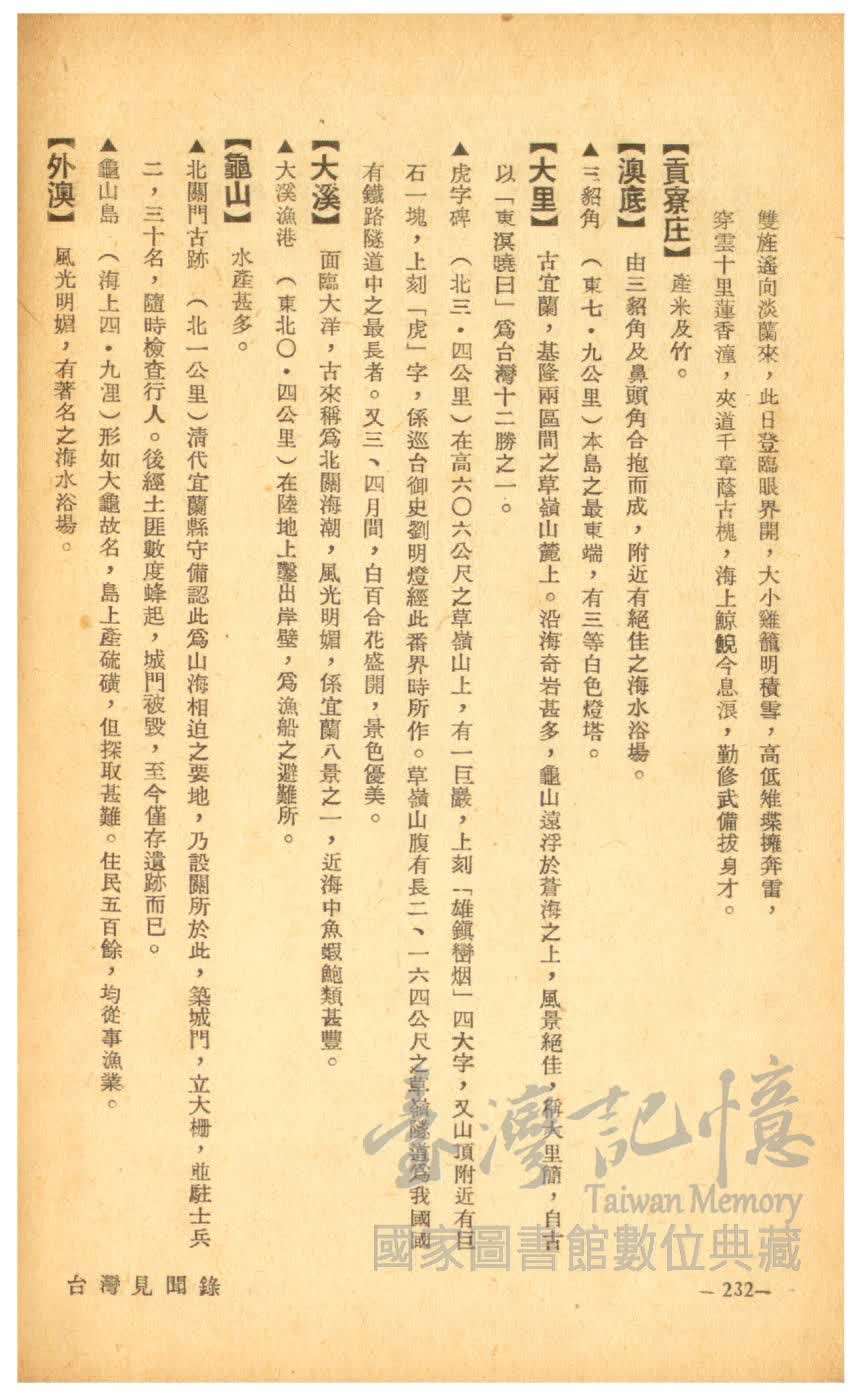 雙旌遙向淡蘭來，此日登臨眼界開，大小雞籠明積雪，高低雉堞擁奔雷，
穿雲十里蓮香潼，夾道千章蔭古槐，海上鯨鯢今息浪，勤修武備拔身才。
【貢寮庄】　產米及竹。
【澳底】　由三貂角及鼻頭角合抱而成，附近有絕佳之海水浴場。
▲三貂角　（東七・九公里）本島之最東端，有三等白色燈塔。
【大里】　古宜蘭，基隆兩區間之草嶺山麓上。沿海奇岩甚多，龜山遠浮於蒼海之上，風景絕佳，稱大里簡，自古
以「東溟曉日」爲台灣十二勝之一。
▲虎字碑　（北三・四公里）在高六〇六公尺之草嶺山上，有一巨巖，上刻「雄鎭巒烟」四大字，又山頂附近有巨
石一塊，上刻「虎」字，係巡台御史劉明燈經此番界時所作。草嶺山腹有長二、一六四公尺之草嶺隧道爲我國國
有鐵路隧道中之最長者。又三、四月間，白百合花盛開，景色優美。
【大溪】　面臨大洋，古來稱爲北關海潮，風光明媚，係宜蘭八景之一，近海中魚蝦鮑類甚豐。
▲大溪漁港　（東北〇・四公里）在陸地上鑿出岸壁，爲漁船之避難所。
【龜山】　水產甚多。
▲北關門古跡　（北一公里）清代宜蘭縣守備認此爲山海相迫之要地，乃設關所於此，築城門，立大柵，並駐士兵
二，三十名，隨時檢查行人。後經土匪數度蜂起，城門被毀，至今僅存遺跡而已。
▲龜山島　（海上四・九浬）形如大龜故名，島上產硫磺，但採取甚難。住民五百餘，均從事漁業。
【外澳】　風光明媚，有著名之海水浴場。
台灣見聞錄
－232－
臺灣記憶
Taiwan Memory
國家圖書館數位典藏